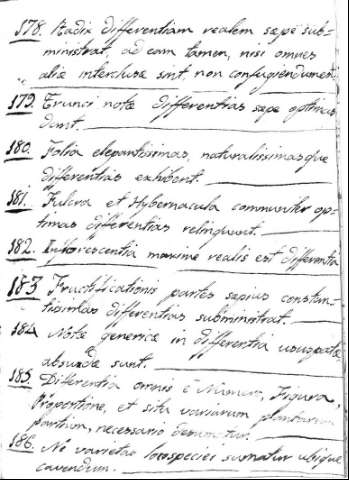 178. Radix differentiam realem sæpe sub=
ministrat, ad eam tamen, nisi omnes
aliæ interclusæ sint non confugiendum est.
179. Trunci notæ differentias sæpe optimas
dant.
180. Folia elegantissimas, naturalissimasque
differentias exhibent.
181. Fulcra et Hybernacula communiter op=
timas differentias relinquunt.
182. Inflorescentia maxime realis est differentia
183 Fructificationis partes sæpius constan=
tissimas differentias subministrat.
184. Notæ genericæ in differentia usurpatæ
absurdæ sunt.
185. Differentia omnis e Numero, Figura,
Proportione, et situ variarum plantarum
partium, necessario desumatur.
186. Ne varietas loco speciei sumatur ubique
cavendum.